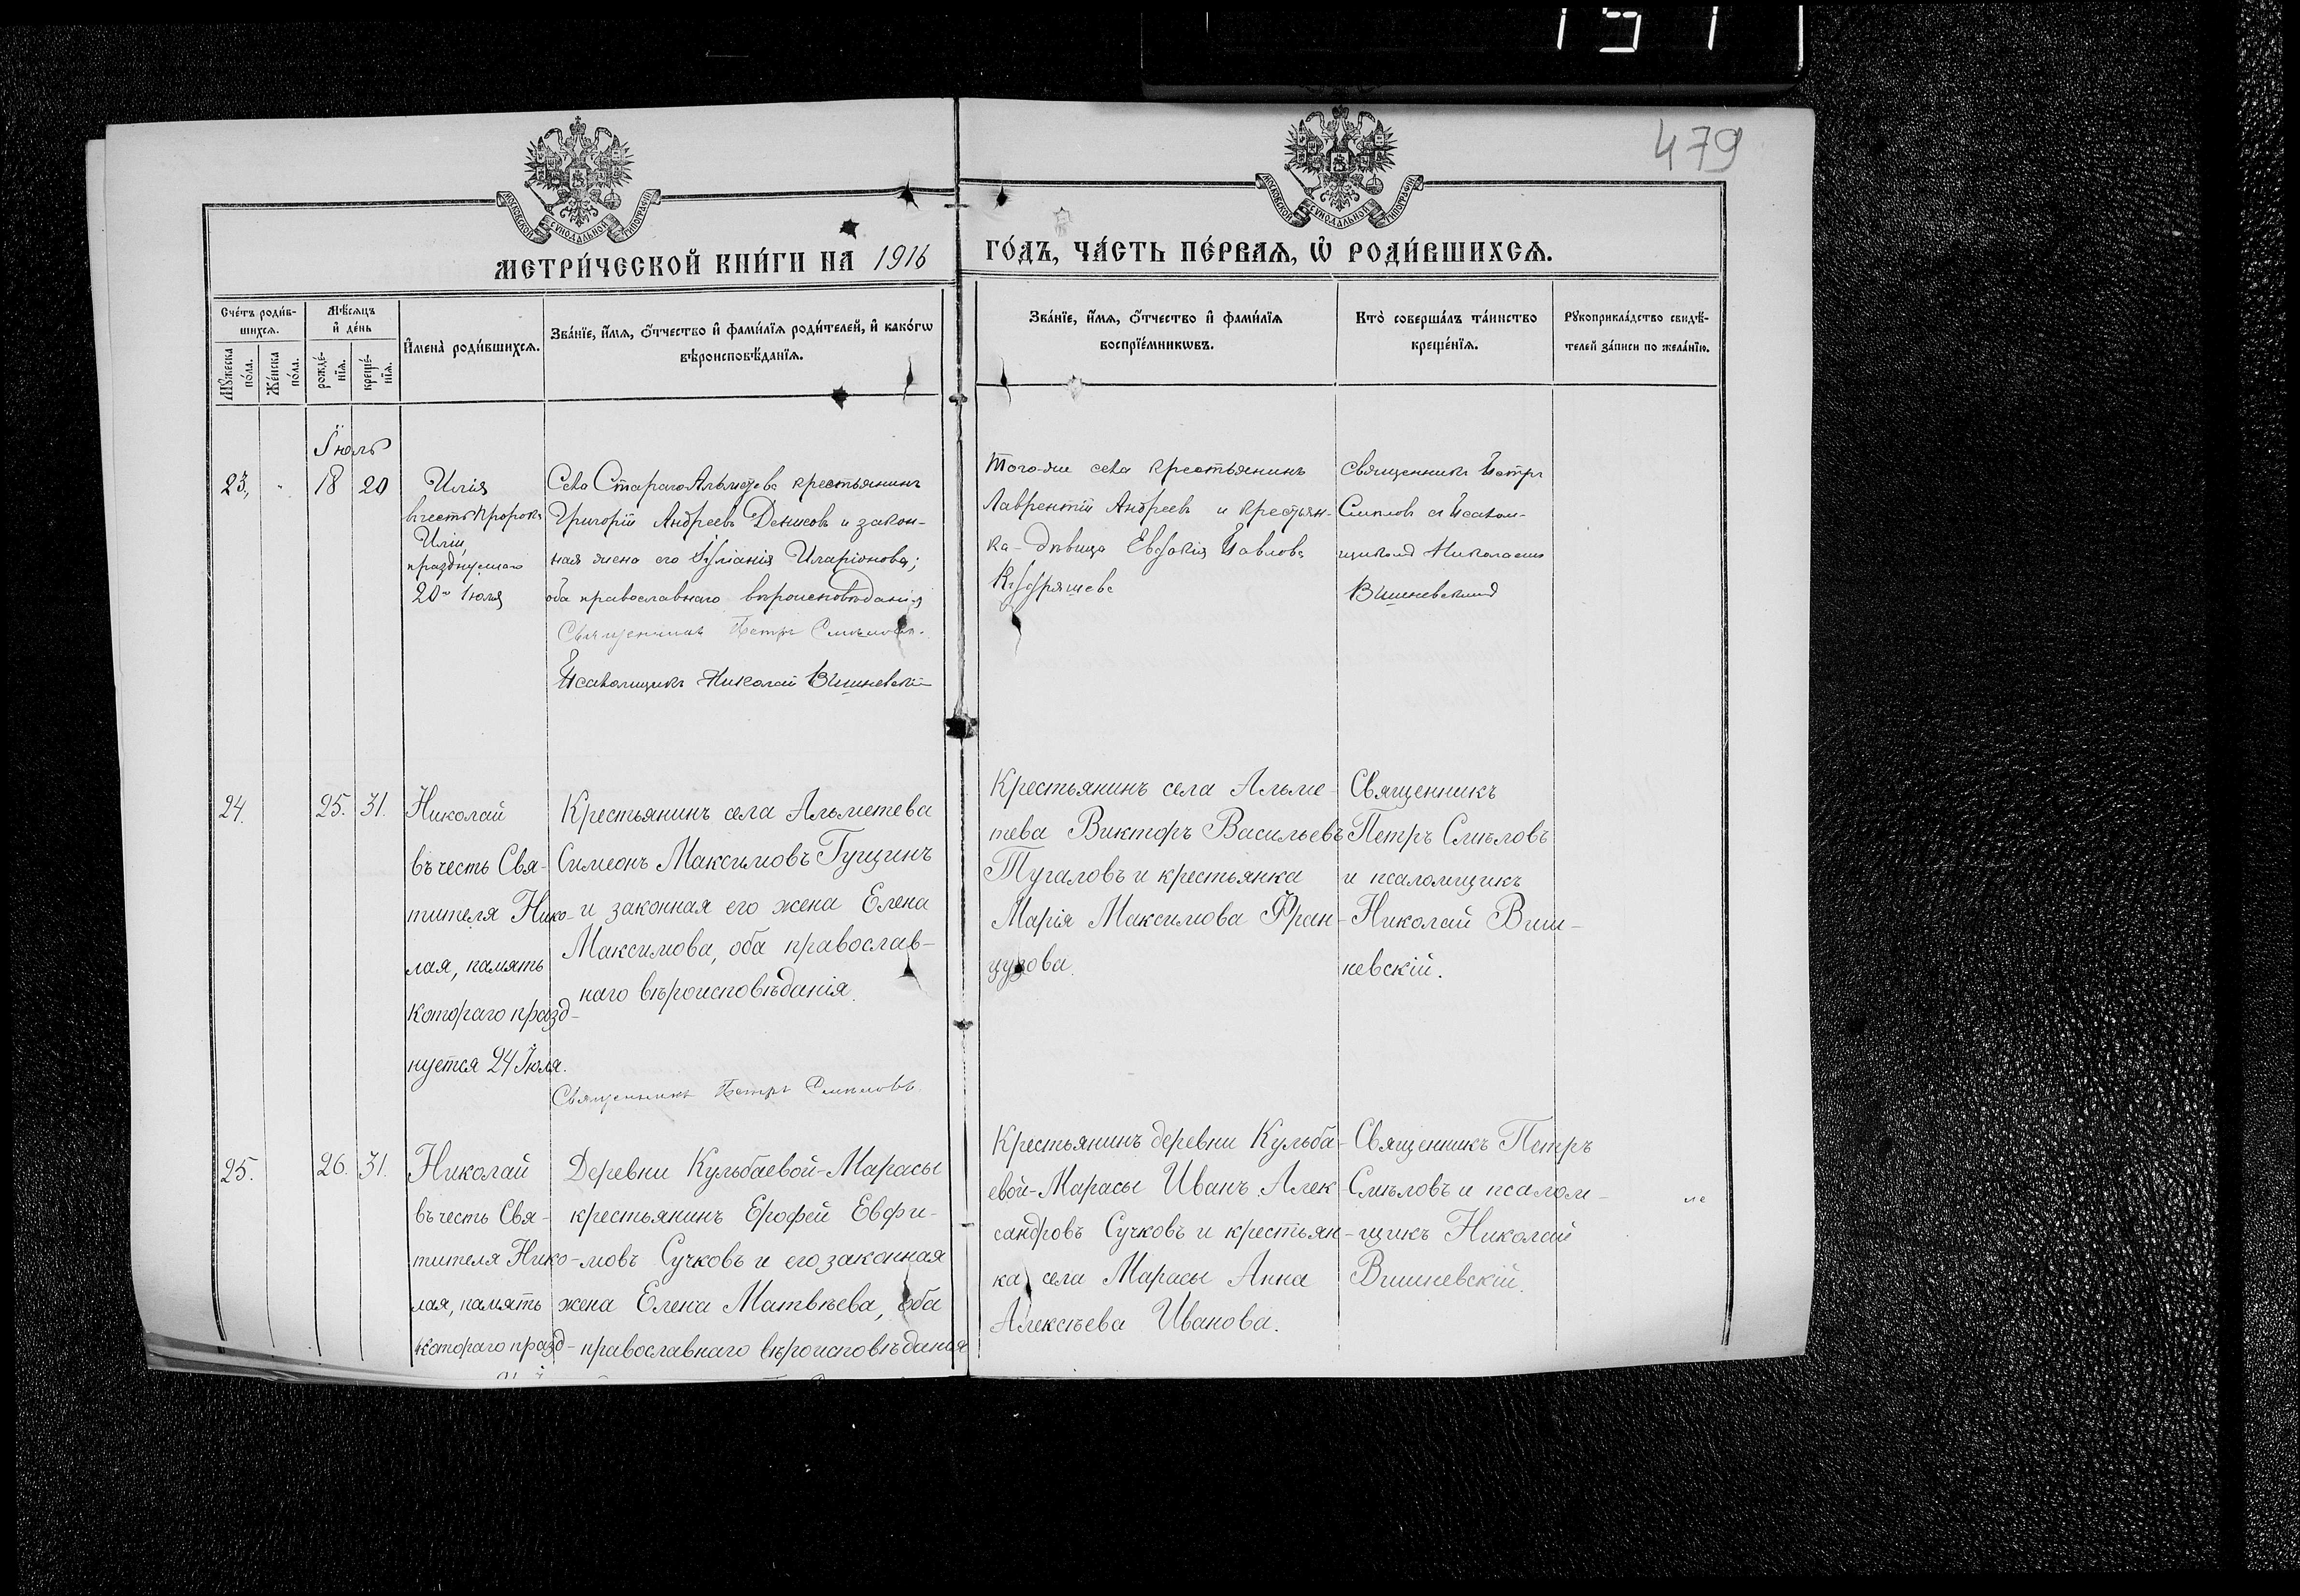 479
МЕТРИ́ЧЕСКОЙ КНИ́ГИ НА 1916 ГО́ДЪ, ЧА́СТЬ ПЕ́РВАѦ, Ѡ҆ РОДИ́ВШИХСѦ.
Сче́тъ роди́в-
шихсѧ.
Мѣ́сѧцъ
и҆ де́нь
Мꙋ́жеска
по́ла.
Же́нска
по́ла.
рожде́-
нїѧ.
креще́-
нїѧ.
И҆мена̀ роди́вшихсѧ.
Зва́нїе, и҆́мѧ, ѻ҆́тчество и҆ фами́лїѧ роди́телей, и҆ како́гѡ
вѣроисповѣ́данїѧ.
Зва́нїе, и҆́мѧ, ѻ҆́тчество и҆ фами́лїѧ
воспрїе́мникѡвъ.
Кто̀ соверша́лъ та́инство
креще́нїѧ.
Рꙋкоприкла́дство свидѣ́-
телей за́писи по жела́нїю.
Іюль
23, " 18 20
Илія
въ честь Пророка
Иліи,
празднуемаго
20го Іюля
Села Стараго Альметева крестьянинъ
Григорій Андреевъ Денисовъ и закон-
ная жена его Іуліанія Иларіонова;
оба православнаго вѣроисповѣданія
Священникъ Петръ Смѣловъ.
Псаломщикъ Николай Вишневскій
Того-же села крестьянинъ
Лаврентій Андреевъ и крестьян-
ка-дѣвица Евдокія Павлова
Кудряшева
Священникъ Петръ
Смѣловъ съ Псалом-
щикомъ Николаемъ
Вишневскимъ
24. 25. 31.
Николай
въ честь Свя-
тителя Нико-
лая, память
котораго празд-
нуется 24 Іюля.
Крестьянинъ села Альметева
Симеонъ Максимовъ Гущинъ
и законная его жена Елена
Максимова, оба православ-
наго вѣроисповѣданія.
Священникъ Петръ Смѣловъ.
Крестьянинъ села Альме-
тева Викторъ Васильевъ
Тугаловъ и крестьянка
Марія Максимова Фран-
цузова.
Священникъ
Петръ Смѣловъ
и псаломщикъ
Николай Виш-
невскій.
25. 26. 31.
Николай
въ честь Свя-
тителя Нико-
лая, память
котораго празд-
Деревни Кульбаевой-Марасы
крестьянинъ Ерофей Евфи-
мовъ Сучковъ и его законная
жена Елена Матвѣева, оба
православнаго вѣроисповѣданія
Крестьянинъ деревни Кульба-
евой-Марасы Иванъ Алек-
сандровъ Сучковъ и крестьян-
ка села Марасы Анна
Алексѣева Иванова.
Священникъ Петръ
Смѣловъ и псалом-
щикъ Николай
Вишневскій.